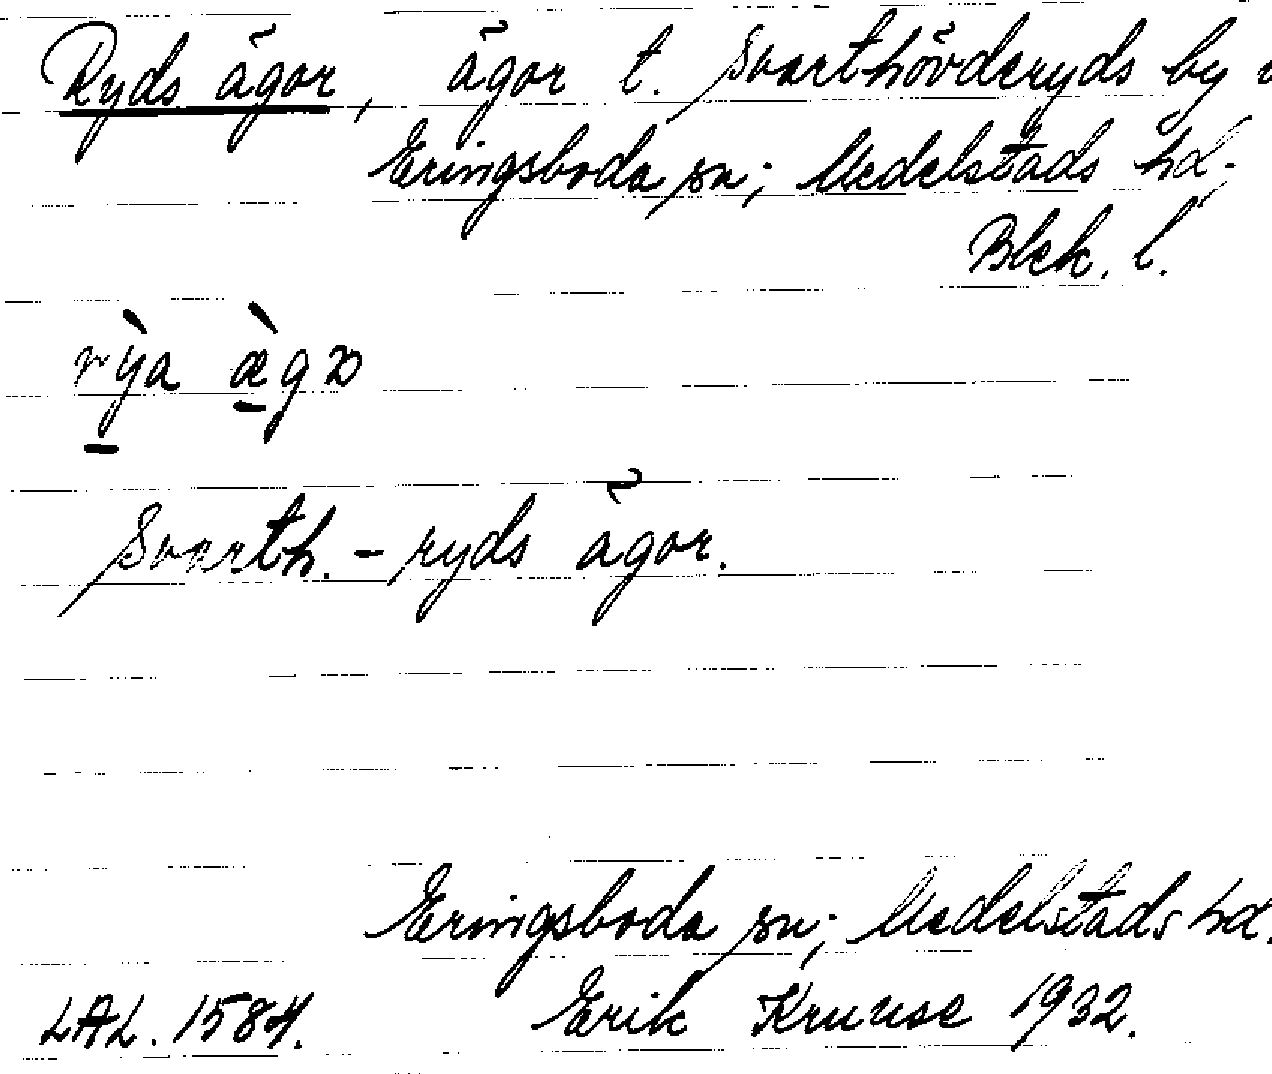 Ryds ägor, ägor t. Svarthövderyds by i
Eringsboda sn; Medelstads hd.
Blek. l.
rỳa æ̀gɷ
Svarth.-ryds ägor.
Eringsboda sn; Medelstads hd.
LAL. 1584. Erik Kruuse 1932.